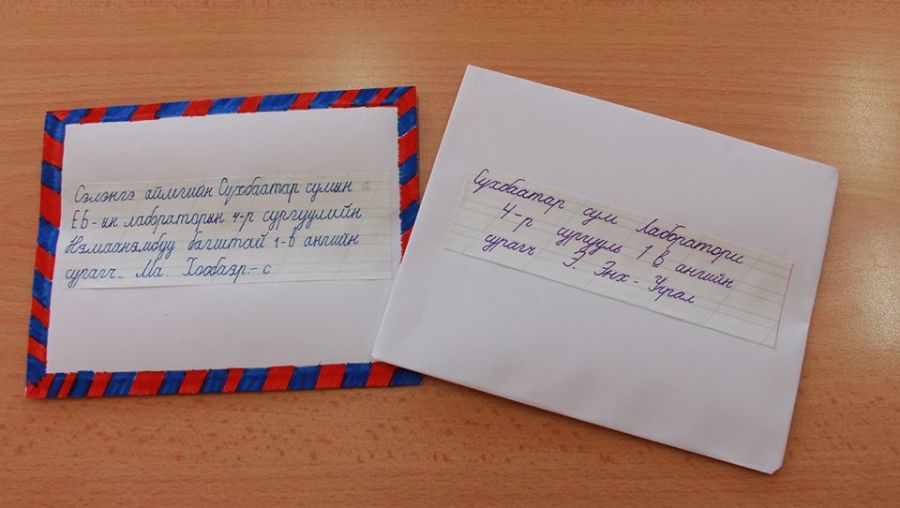 Сэлэнгэ аймгийн Сүхбаатар сумын
ЕБ-ын лаборатори 4-р сургуулийн
Нэмаанэмбуу багштай 1-в ангийн
сурагч Ма.
Сүхбаатар сум Лаборатори
4-р сургууль 1 в ангийн
сурагч Э. Энх-Учрал